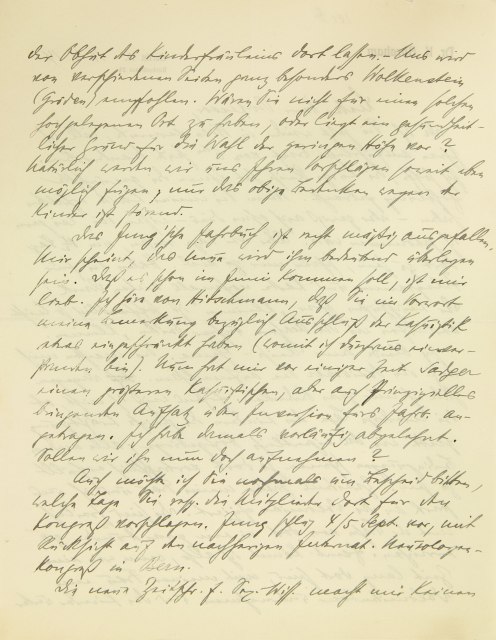 der Obhut des Kinderfräuleins dort lassen. – Uns wird
von verschiedenen Seiten ganz besonders Wolkenstein
(Gröden) empfohlen. Wären Sie nicht für einen solchen
hochgelegenen Ort zu haben, oder liegt ein gesundheit-
licher Grund für die Wahl der geringen Höhe vor?
Natürlich werden wir uns Ihren Vorschlägen soweit eben
möglich fügen, nur das obige Bedenken wegen der
Kinder ist störend.
Das Jung'sche Jahrbuch ist recht mäßig ausgefallen.
Mir scheint, das neue wird ihm bedeutend überlegen
sein. Daß es schon im Juni kommen soll, ist mir
lieb. Ich höre von Hitschmann, daß Sie im Vorwort
meine Bemerkung bezüglich Ausschluß der Kasuistik
etwas eingeschränkt haben (womit ich durchaus einver-
standen bin). Nun hat mir vor einiger Zeit Sadger
einen größeren kasuistischen, aber auch Prinzipielles
bringenden Aufsatz über Inversion fürs Jahrb. an-
getragen. Ich habe damals vorläufig abgelehnt.
Sollen wir ihn nun doch aufnehmen?
Auch möchte ich Sie nochmals um Bescheid bitten,
welche Tage Sie resp. die Mitglieder dort für den
Kongreß vorschlagen. Jung schlug 4/5 Sept. vor, mit
Rücksicht auf den nachherigen Internat. Neurologen-
Kongreß in Bern.
Die neue Zeitschr. f. Sex. Wiss. macht mir keinen